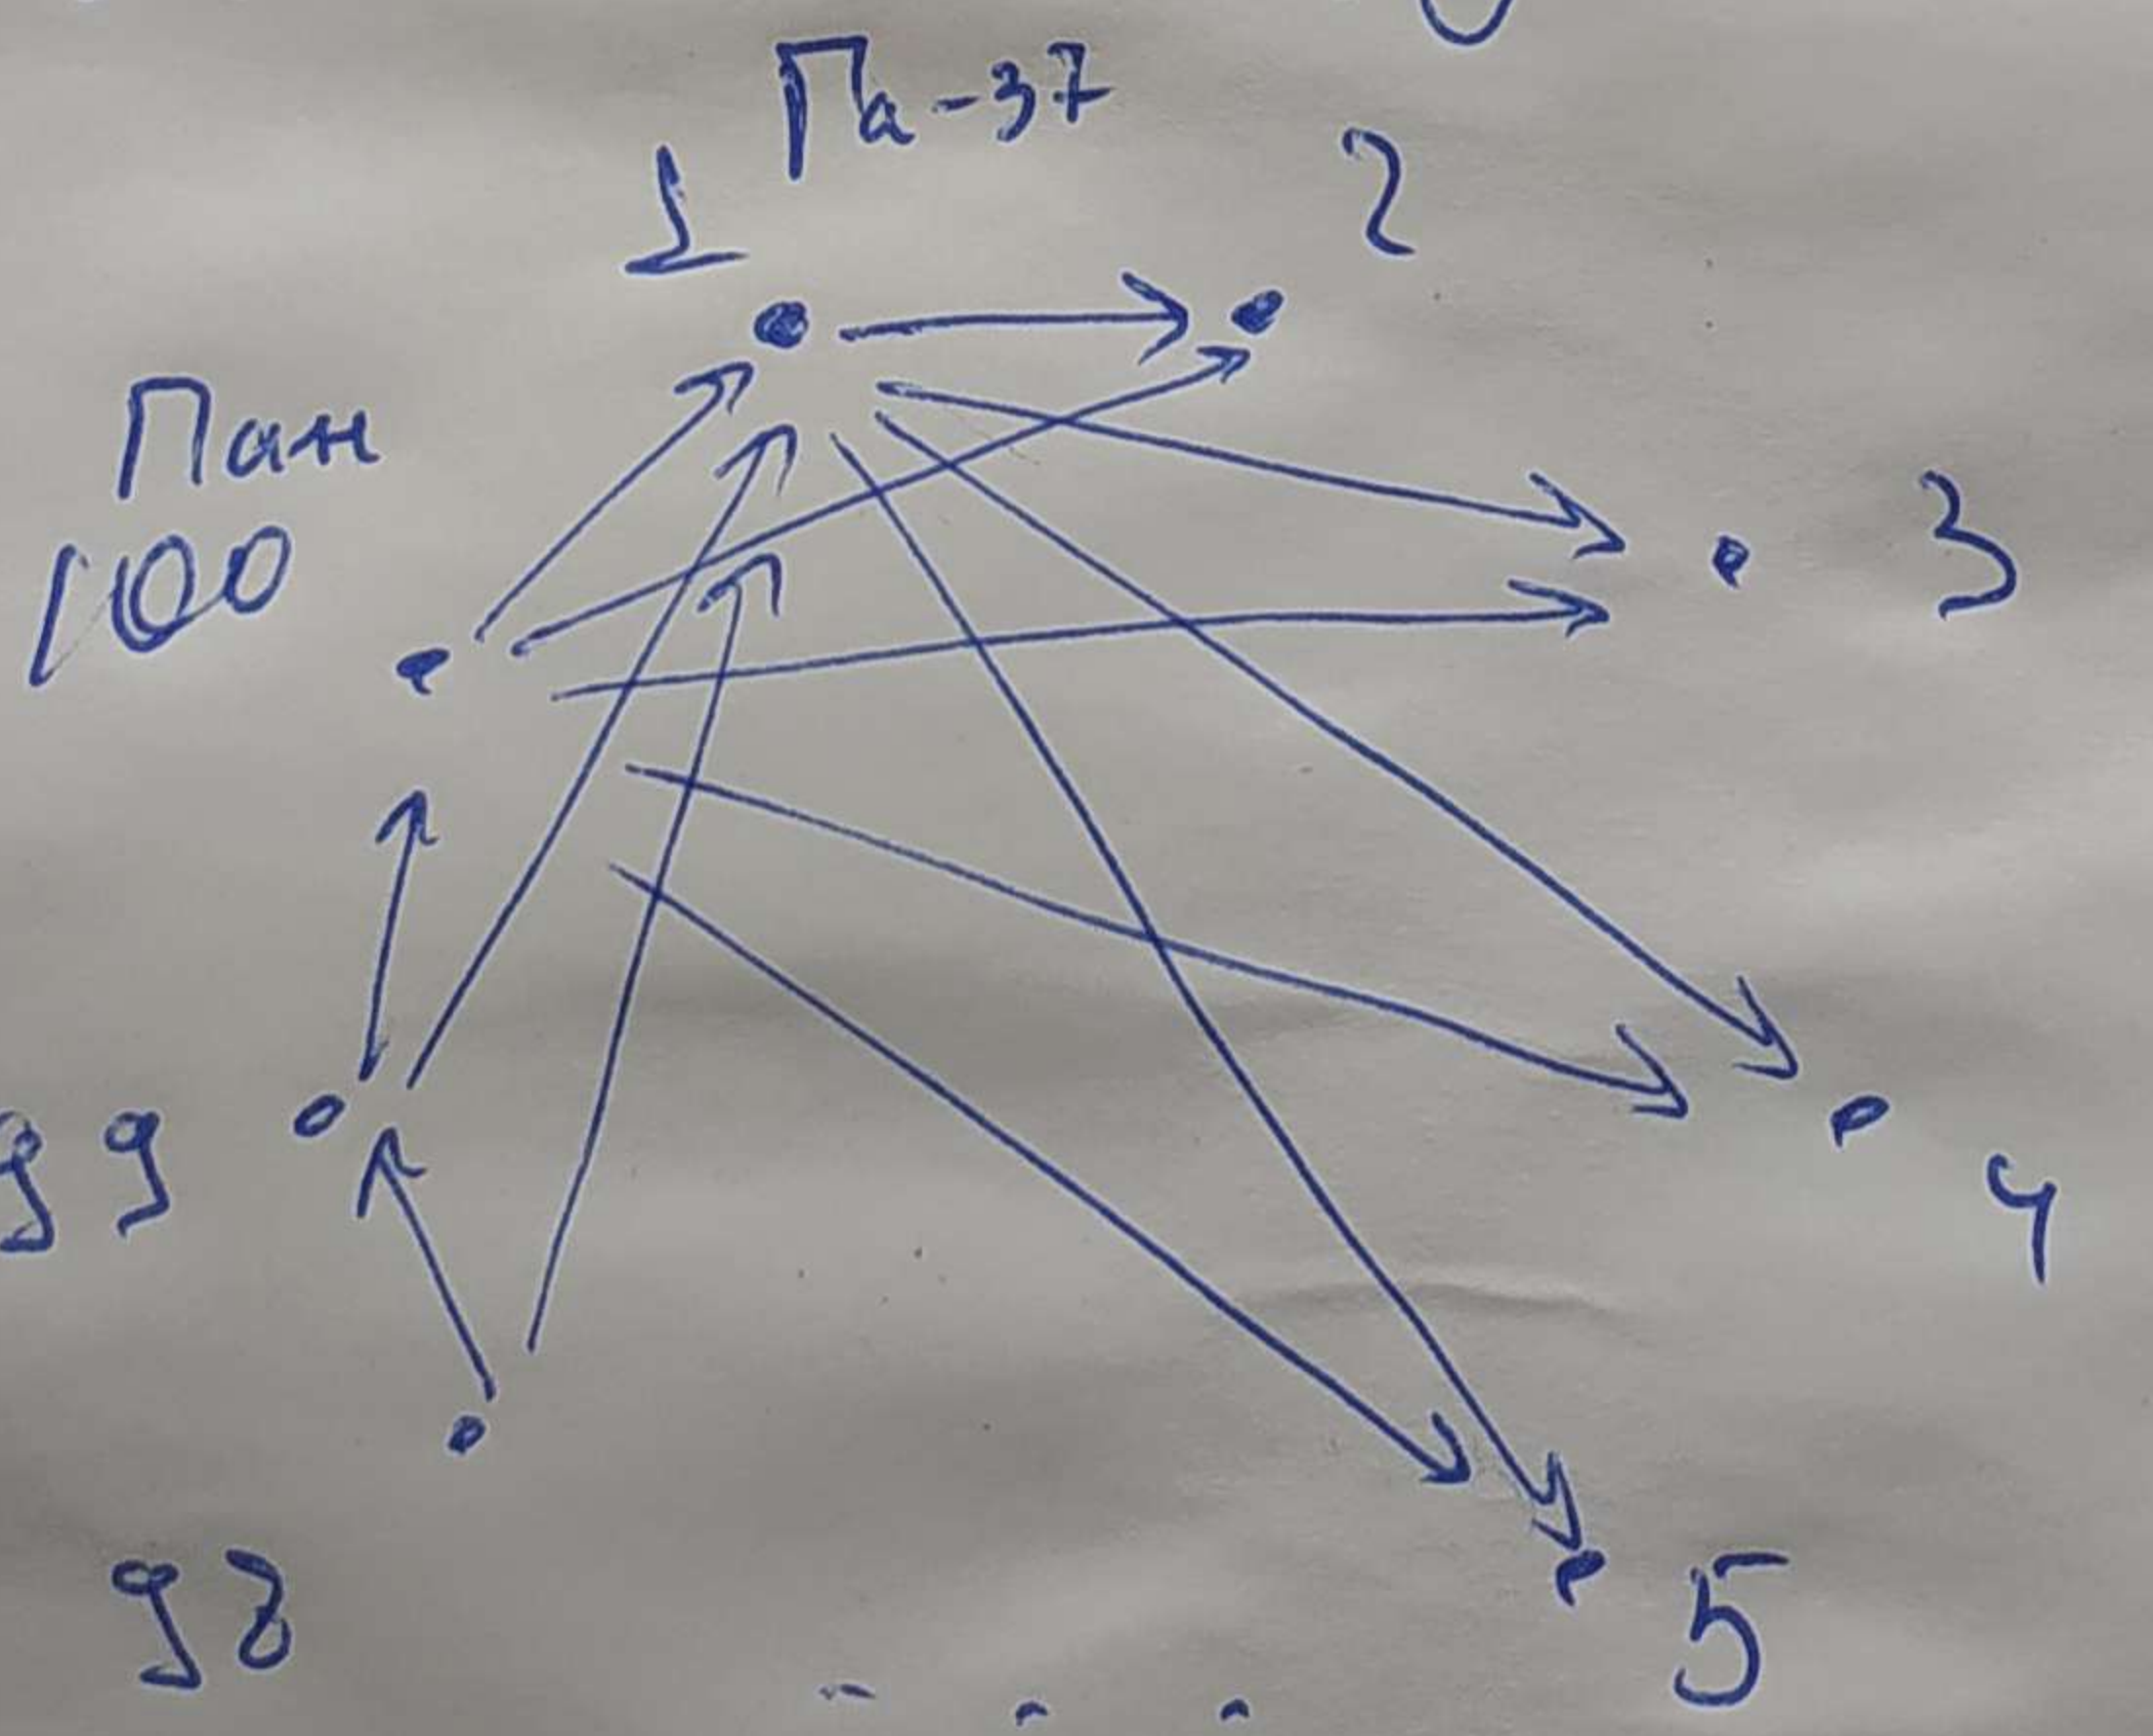 Па-37
1
2
Пан
100
3
99
4
98
5